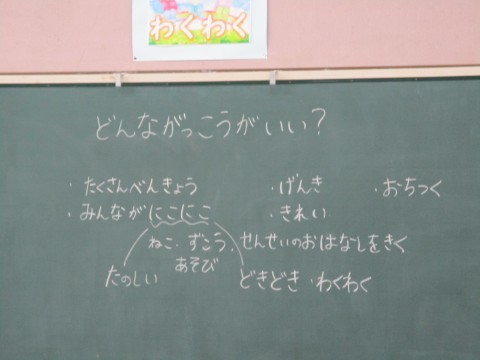 わくわく
どんながっこうがいい?
・たくさんべんきょう ・げんき ・おちつく
・みんながにこにこ ・きれい
ねこ・ずこう、せんせいのおはなしをきく
あそび
たのしい どきどき・わくわく